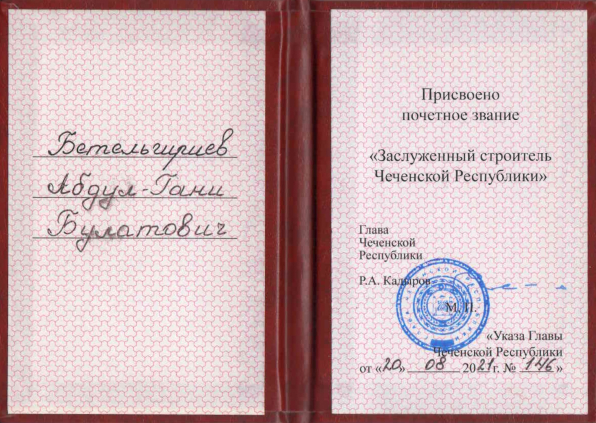 Бетельгириев
Абдул-Гани
Булатович
Присвоено
почетное звание
«Заслуженный строитель
Чеченской Республики»
Глава
Чеченской
Республики
Р.А. Кадыров
М. П.
«Указа Главы
Чеченской Республики
от «20» 08 2021г. № 146»